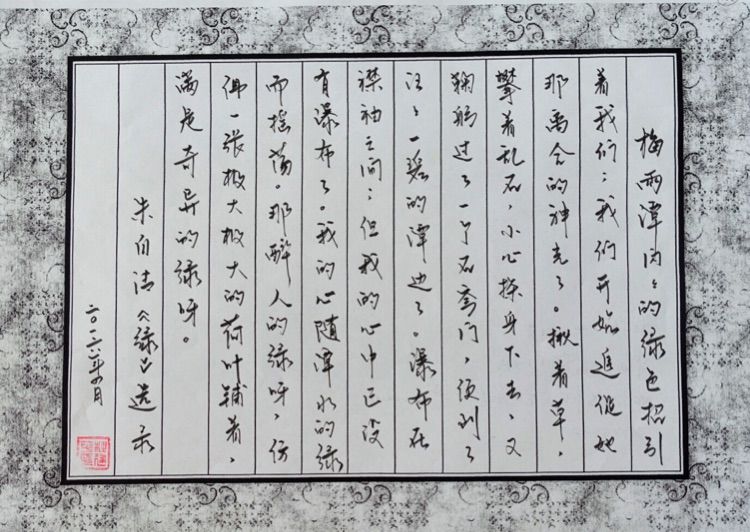 梅雨潭闪々的绿色招引
着我们；我们开始追捉她
那离合的神光了。揪着草，
攀着乱石，小心探身下去，又
鞠躬过了一个石穹门，便到了
汪々一碧的潭边了。瀑布在
襟袖之间；但我的心中已没
有瀑布了。我的心随潭水的绿
而摇荡。那醉人的绿呀，仿
佛一张极大极大的荷叶铺着，
满是奇异的绿呀。
朱自清《绿》选录